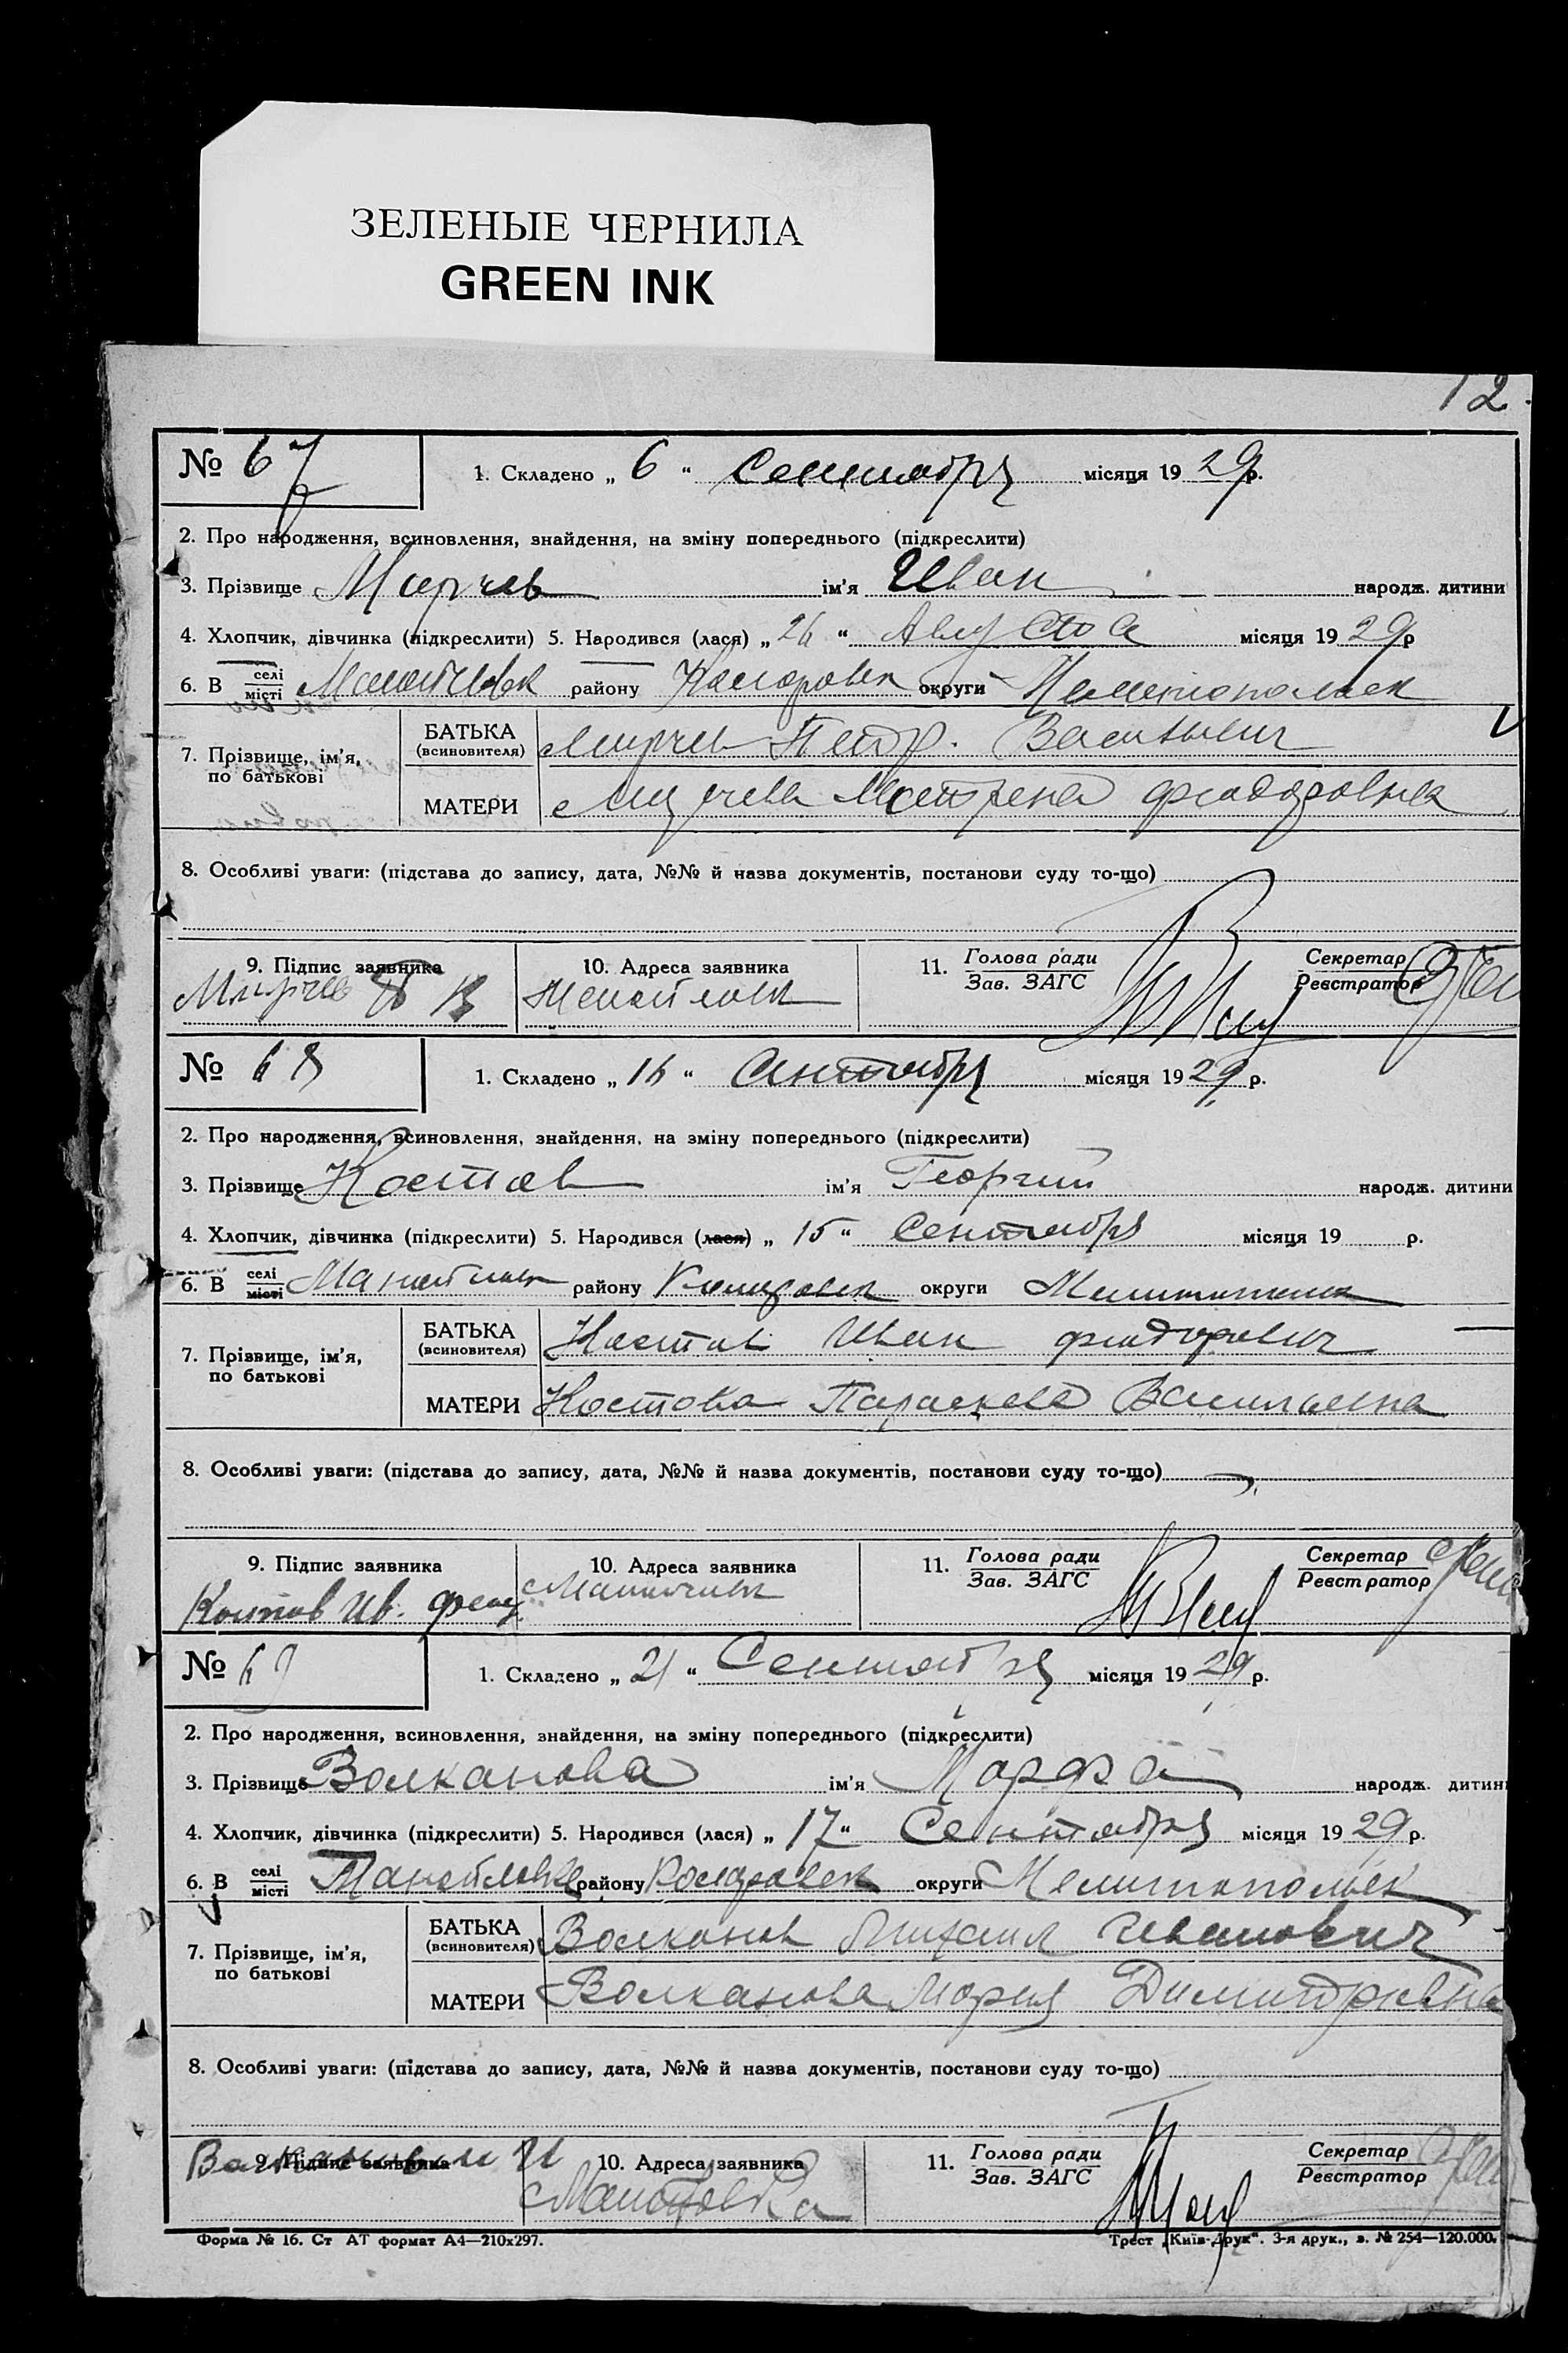 ЗЕЛЕНЫЕ ЧЕРНИЛА
GREEN INK
12.
№ 67
1. Складено „ 6 “ Сентября місяця 19 29 р.
2. Про народження, всиновлення, знайдення, на зміну попереднього (підкреслити)
3. Прізвище Мирчев ім'я Иван народж. дитини
4. Хлопчик, дівчинка (підкреслити) 5. Народився (лася) „ 26 “ Августа місяця 19 29 р
6. В селі місті району округи Мелитопольск
7. Прізвище, ім'я, по батькові
БАТЬКА (всиновителя) Мирчев Петр. Васильевич
МАТЕРИ Мирчева Мотрена Фиодоровна
8. Особливі уваги: (підстава до запису, дата, №№ й назва документів, постанови суду то-що)
9. Підпис заявника 10. Адреса заявника 11. Голова ради Зав. ЗАГС Секретар Реєстратор
Мирчев П В
№ 68
1. Складено „ 16 “ Сентября місяця 19 29 р.
2. Про народження, всиновлення, знайдення, на зміну попереднього (підкреслити)
3. Прізвище Костов ім'я Георгий народж. дитини
4. Хлопчик, дівчинка (підкреслити) 5. Народився (лася) „ 15 “ Сентября місяця 19 р.
6. В селі місті району округи
7. Прізвище, ім'я, по батькові
БАТЬКА (всиновителя) Костов Иван Фиодорович
МАТЕРИ Костова Параскева Васильевна
8. Особливі уваги: (підстава до запису, дата, №№ й назва документів, постанови суду то-що)
9. Підпис заявника 10. Адреса заявника 11. Голова ради Зав. ЗАГС Секретар Реєстратор
Костов Ив.
№ 69
1. Складено „ 21 “ Сентября місяця 19 29 р.
2. Про народження, всиновлення, знайдення, на зміну попереднього (підкреслити)
3. Прізвище Волканова ім'я Марфа народж. дитини
4. Хлопчик, дівчинка (підкреслити) 5. Народився (лася) „ 17 “ Сентября місяця 19 29 р.
6. В селі місті району округи Мелитопольск
7. Прізвище, ім'я, по батькові
БАТЬКА (всиновителя) Волканов Михаил Иванович
МАТЕРИ Волканова Мария Димитровна
8. Особливі уваги: (підстава до запису, дата, №№ й назва документів, постанови суду то-що)
9. Підпис заявника 10. Адреса заявника 11. Голова ради Зав. ЗАГС Секретар Реєстратор
Форма № 16. Ст АТ формат А4—210х297. Трест „Київ-Друк“. 3-я друк., з. № 254—120.000.